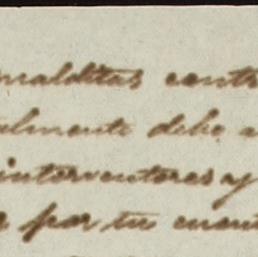 malditas contr
almente debe a
interventores y
e por tu cuent